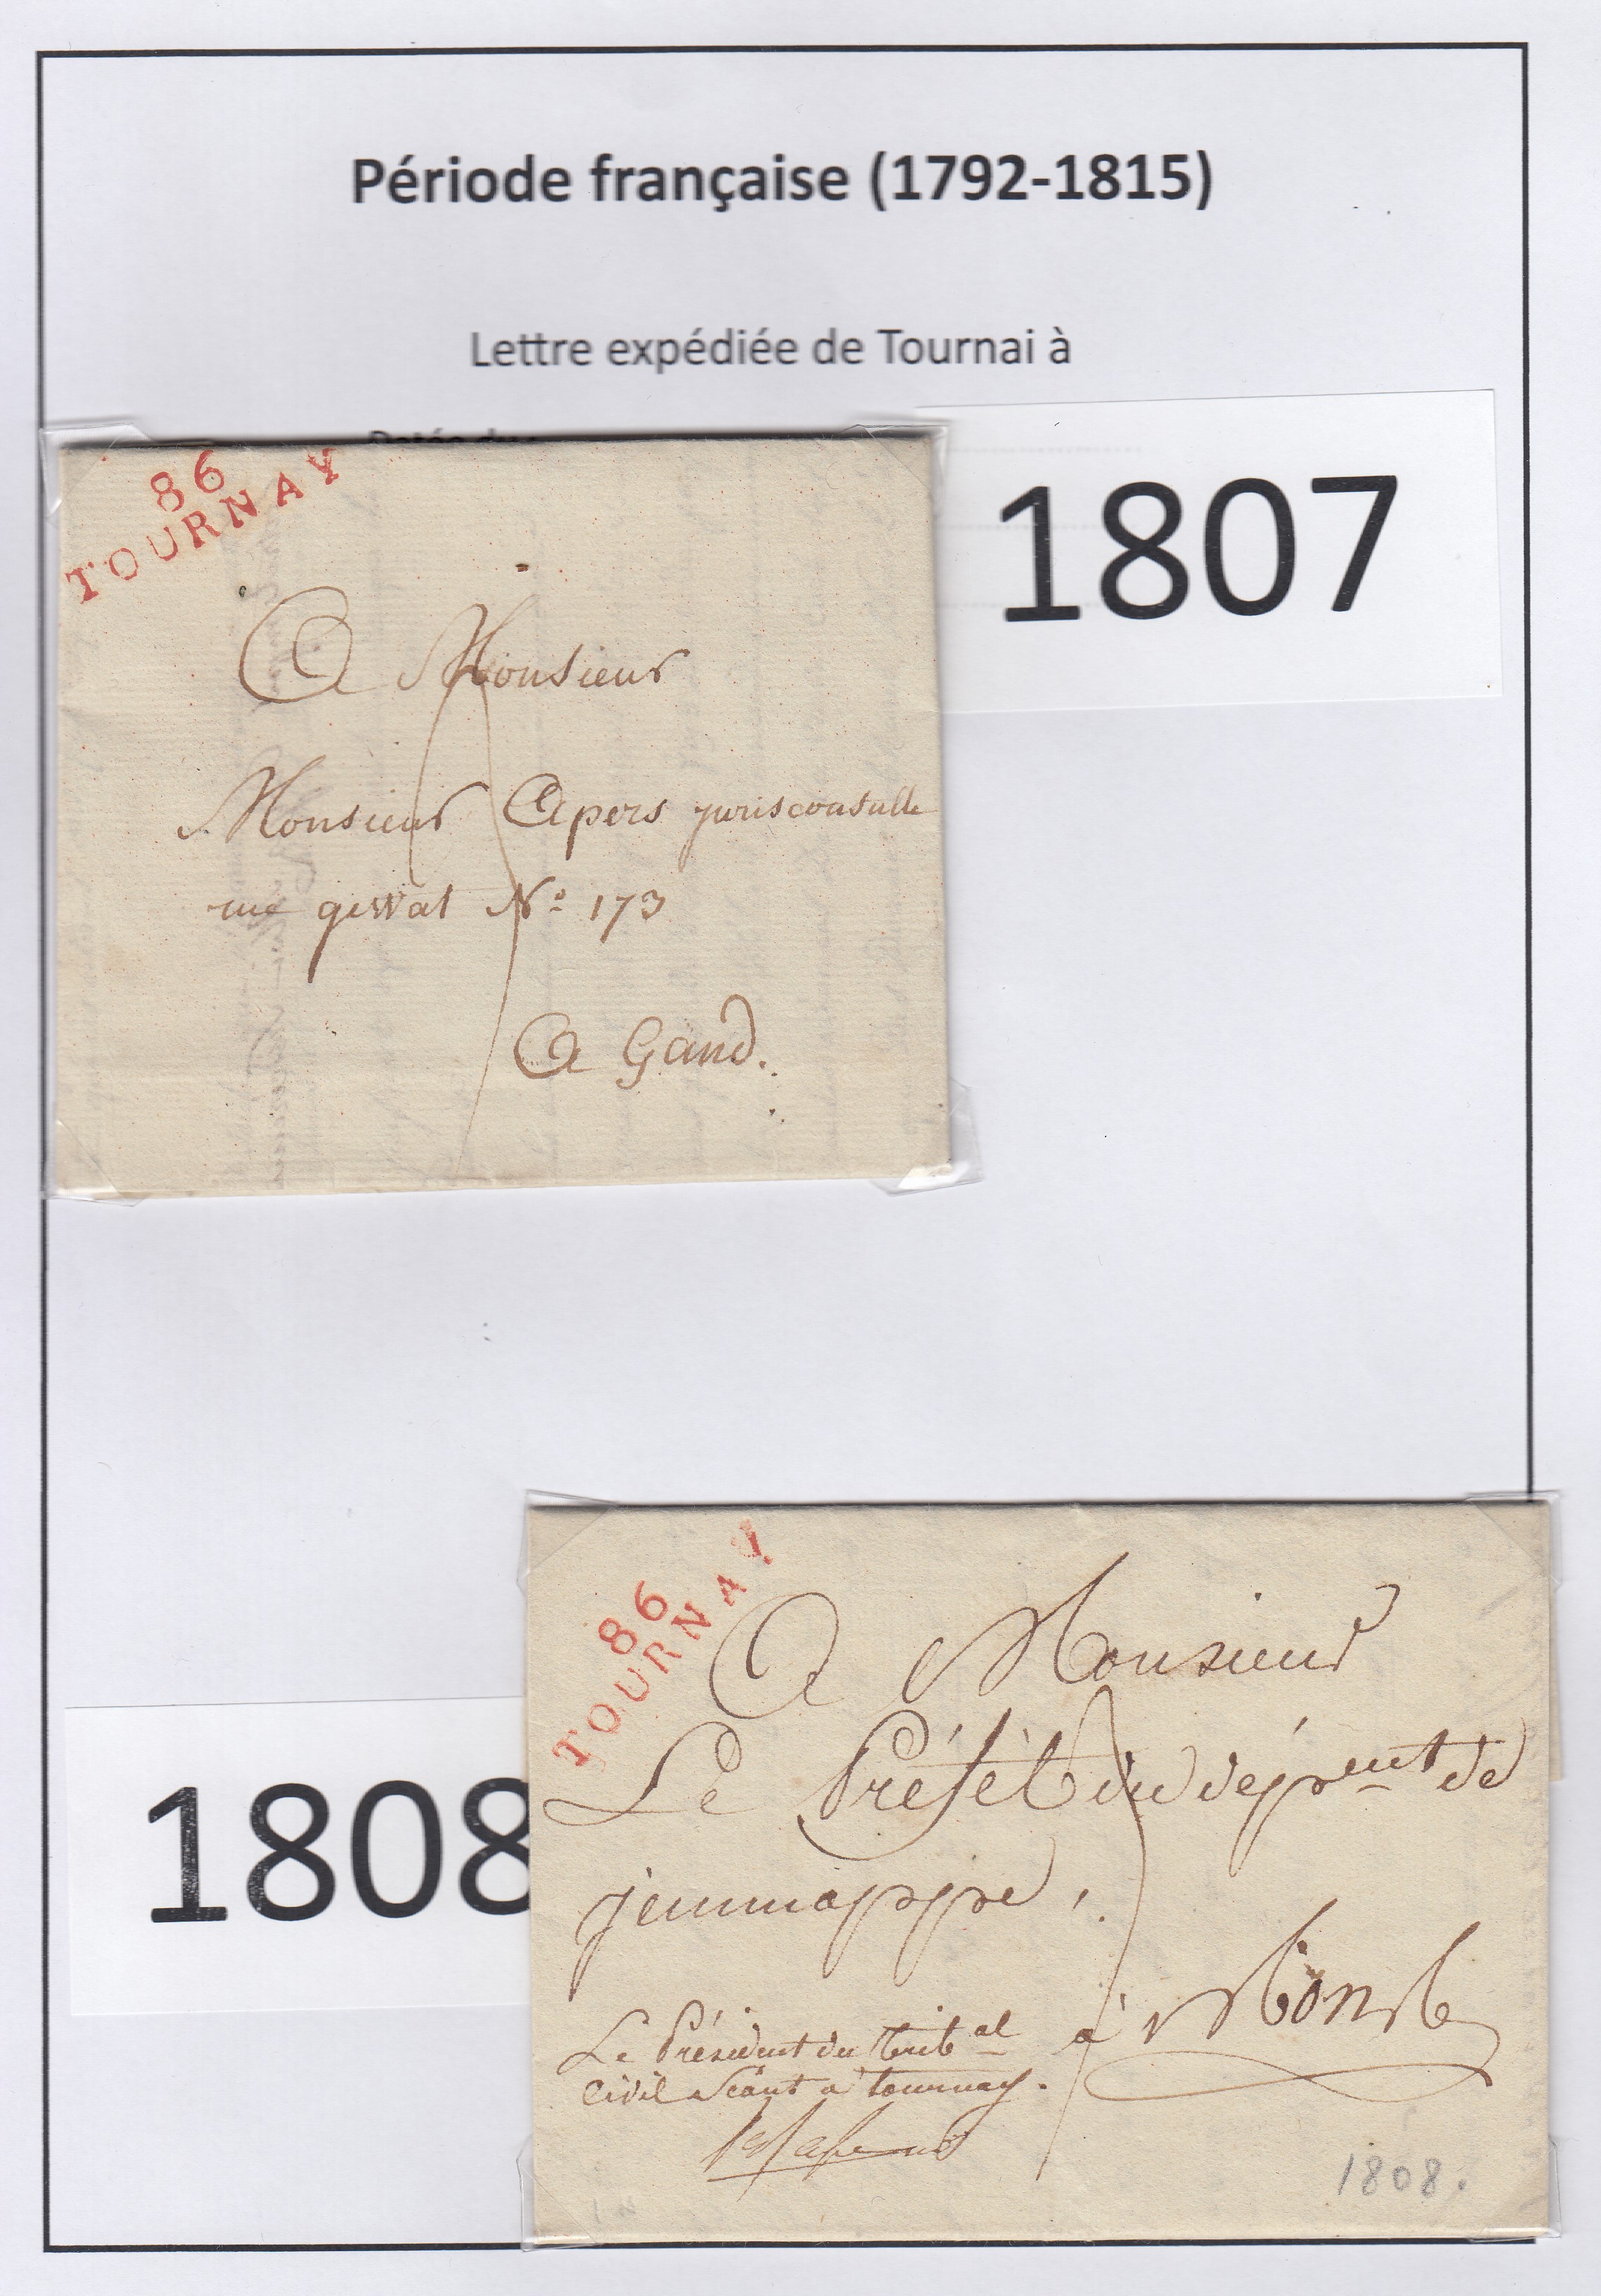 Période française (1792-1815)
Lettre expédiée de Tournai à
1807
86
TOURNAY
A Monsieur
Monsieur Apers jurisconsulte
rue gewat N° 173
A Gand.
1808
86
TOURNAY
A Monsieur
Le Préfét du dépment de
jemmappe,
à Mons
Le Président du tribal
Civil Séant a tournay.
1808.